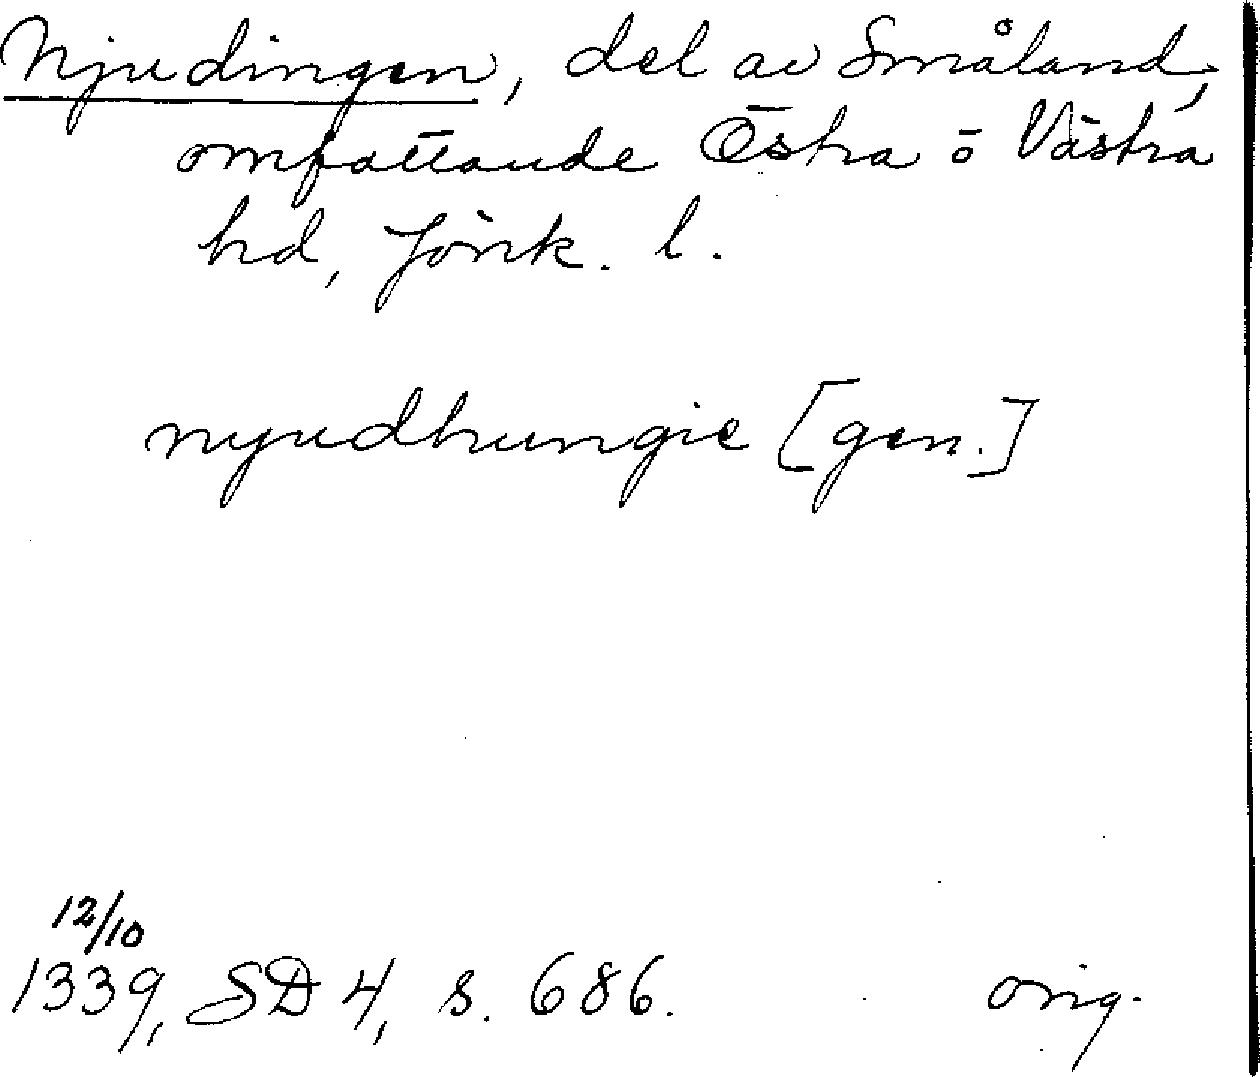 Njudingen, del av Småland,
omfattande Östra o Västra
hd, Jönk. l.
nyudhungie [gen.]
12/10
1339, SD 4, s. 686. orig.